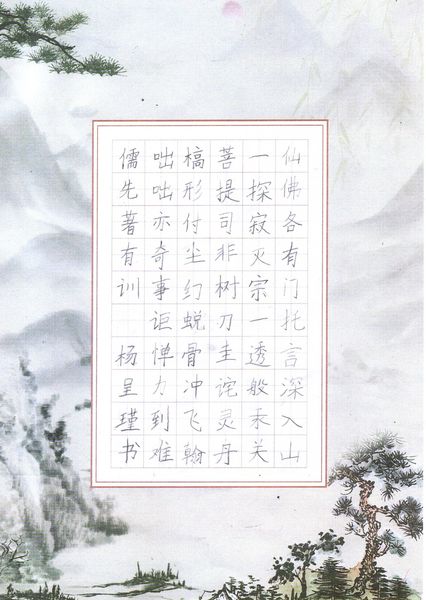 仙佛各有门托言深入山
一探寂灭宗一透般汞关
菩提司非树刀圭诧灵丹
槁形付尘幻蜕骨冲飞翰
咄咄亦奇事讵惮力到难
儒先著有训 杨呈瑾书